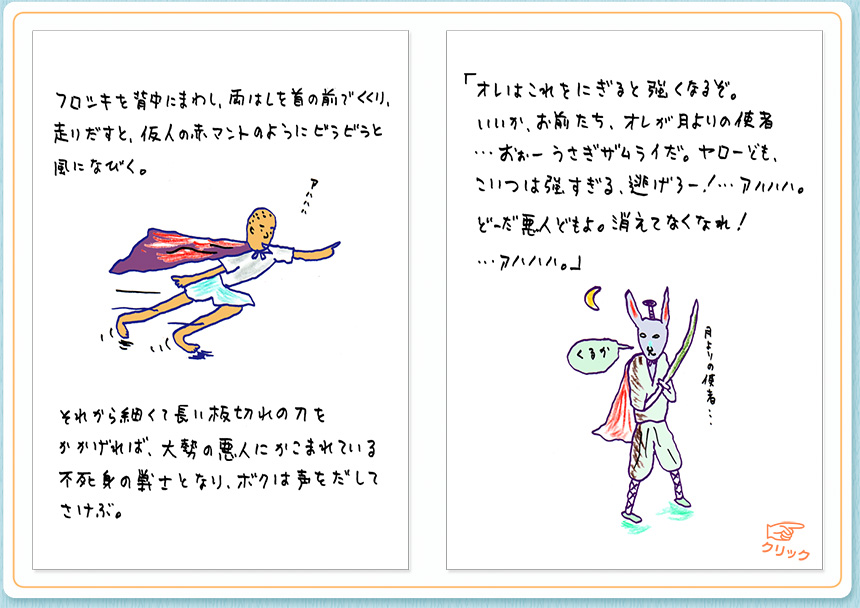 フロシキを背中にまわし、両はしを首の前でくくり、
走りだすと、仮人の赤マントのようにビラビラと
風になびく。
アハハハ
それから細くて長い板切れの刀を
かかげれば、大勢の悪人にかこまれている
不死身の戦士となり、ボクは声をだして
さけぶ。
「オレはこれをにぎると強くなるぞ。
いいか、お前たち、オレが月よりの使者
…おぉーうさぎザムライだ。ヤローども、
こいつは強すぎる、逃げろー!…アハハハ。
どーだ悪人どもよ。消えてなくなれ!
…アハハハ。」
くるか
月よりの使者…
クリック